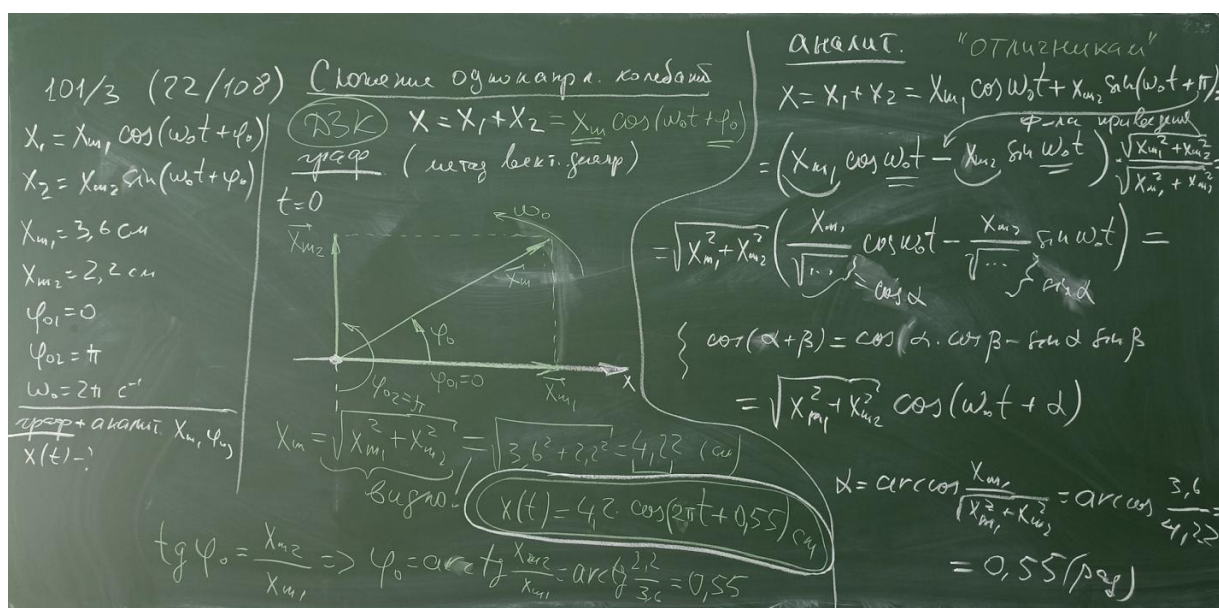 101/3 (22/108)
X₁ = Xm₁ cos(ω₀t + φ₀)
X₂ = Xm₂ sin(ω₀t + φ₀)
Xm₁ = 3,6 см
Xm₂ = 2,2 см
φ₀₁ = 0
φ₀₂ = π
ω₀ = 2π c⁻¹
граф + аналит. Xm, φ₀,
X(t) - ?
Сложение однонапр. колебаний
ДЗК X = X₁ + X₂ = Xm cos(ω₀t + φ₀)
граф (метод вект. диагр)
t = 0
ω₀
Xm₂
Xm
φ₀
φ₀₂ = π
φ₀₁ = 0
Xm₁
X
Xm = √(Xm₁² + Xm₂²) = √(3,6² + 2,2²) = 4,22 (см)
видно!
X(t) = 4,2 cos(2πt + 0,55) см
tg φ₀ = Xm₂/Xm₁ => φ₀ = arctg Xm₂/Xm₁ = arctg 2,2/3,6 = 0,55
аналит. "отличникам"
X = X₁ + X₂ = Xm₁ cos ω₀t + Xm₂ sin(ω₀t + π) =
ф-ла приведения
= (Xm₁ cos ω₀t - Xm₂ sin ω₀t) · √(Xm₁² + Xm₂²)/√(Xm₁² + Xm₂²)
= √(Xm₁² + Xm₂²) (Xm₁/√... cos ω₀t - Xm₂/√... sin ω₀t) =
= cos α
sin α
{ cos(α + β) = cos α · cos β - sin α sin β
= √(Xm₁² + Xm₂²) cos(ω₀t + α)
α = arccos Xm₁/√(Xm₁² + Xm₂²) = arccos 3,6/4,22 =
= 0,55 (рад)